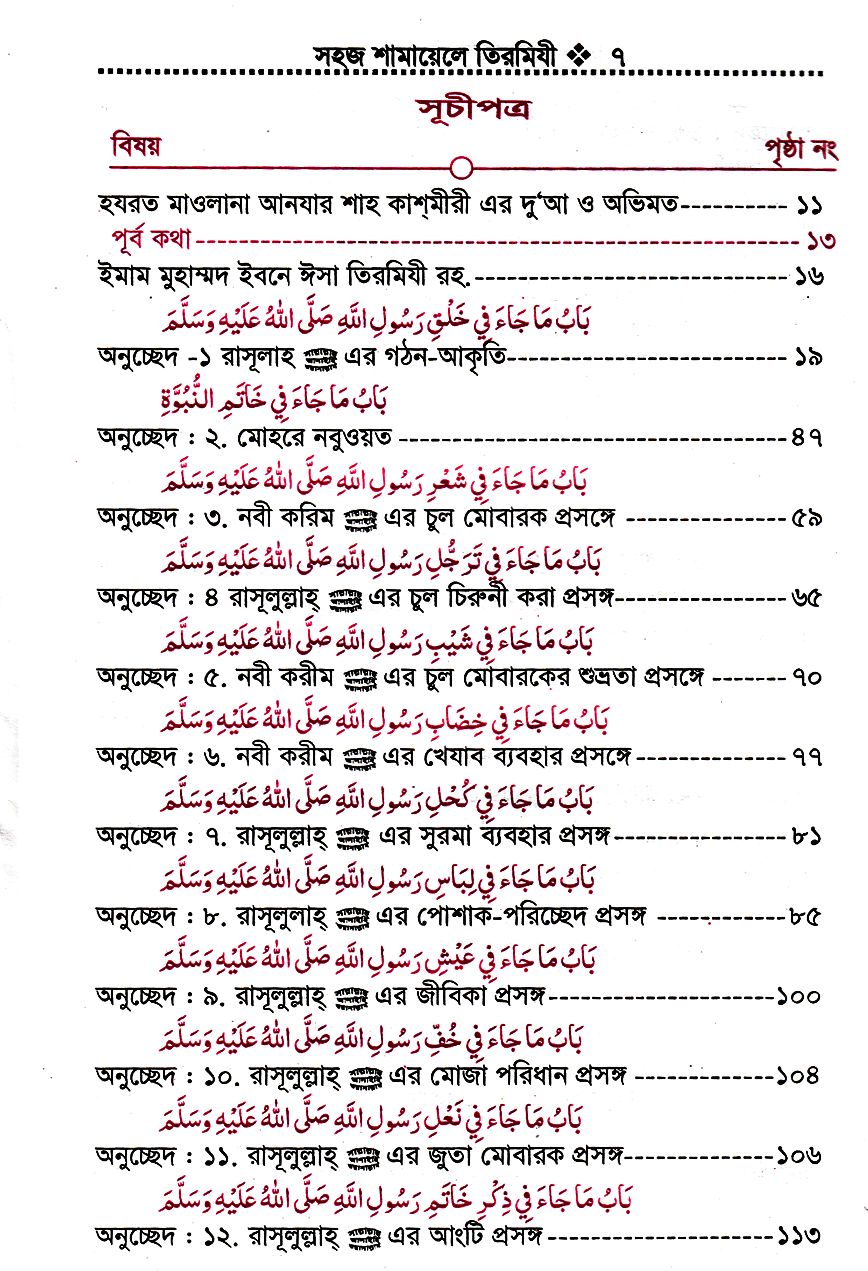 সহজ শামায়েলে তিরমিযী ❖ ৭
সূচীপত্র
বিষয় পৃষ্ঠা নং
হযরত মাওলানা আনযার শাহ কাশ্মীরী এর দু‘আ ও অভিমত---------- ১১
পূর্ব কথা------------------------------------------------------- ১৩
ইমাম মুহাম্মদ ইবনে ঈসা তিরমিযী রহ.----------------------------- ১৬
بَابُ مَا جَاءَ فِي خَلْقِ رَسُولِ اللَّهِ صَلَّى اللهُ عَلَيْهِ وَسَلَّمَ
অনুচ্ছেদ -১ রাসূলাহ ﷺ এর গঠন-আকৃতি-------------------------- ১৯
بَابُ مَا جَاءَ فِي خَاتَمِ النُّبُوَّةِ
অনুচ্ছেদ : ২. মোহরে নবুওয়ত ------------------------------------ ৪৭
بَابُ مَا جَاءَ فِي شَعْرِ رَسُولِ اللَّهِ صَلَّى اللهُ عَلَيْهِ وَسَلَّمَ
অনুচ্ছেদ : ৩. নবী করিম ﷺ এর চুল মোবারক প্রসঙ্গে ---------------৫৯
بَابُ مَا جَاءَ فِي تَرَجُّلِ رَسُولِ اللَّهِ صَلَّى اللهُ عَلَيْهِ وَسَلَّمَ
অনুচ্ছেদ : ৪ রাসূলুল্লাহ্ ﷺ এর চুল চিরুনী করা প্রসঙ্গ---------------- ৬৫
بَابُ مَا جَاءَ فِي شَيْبِ رَسُولِ اللَّهِ صَلَّى اللهُ عَلَيْهِ وَسَلَّمَ
অনুচ্ছেদ : ৫. নবী করীম ﷺ এর চুল মোবারকের শুভ্রতা প্রসঙ্গে ------- ৭০
بَابُ مَا جَاءَ فِي خِضَابِ رَسُولِ اللَّهِ صَلَّى اللهُ عَلَيْهِ وَسَلَّمَ
অনুচ্ছেদ : ৬. নবী করীম ﷺ এর খেযাব ব্যবহার প্রসঙ্গে -------------- ৭৭
بَابُ مَا جَاءَ فِي كُحْلِ رَسُولِ اللَّهِ صَلَّى اللهُ عَلَيْهِ وَسَلَّمَ
অনুচ্ছেদ : ৭. রাসূলুল্লাহ্ ﷺ এর সুরমা ব্যবহার প্রসঙ্গ---------------- ৮১
بَابُ مَا جَاءَ فِي لِبَاسِ رَسُولِ اللَّهِ صَلَّى اللهُ عَلَيْهِ وَسَلَّمَ
অনুচ্ছেদ : ৮. রাসূলুলাহ্ ﷺ এর পোশাক-পরিচ্ছেদ প্রসঙ্গ ------------৮৫
بَابُ مَا جَاءَ فِي عَيْشِ رَسُولِ اللَّهِ صَلَّى اللهُ عَلَيْهِ وَسَلَّمَ
অনুচ্ছেদ : ৯. রাসূলুল্লাহ্ ﷺ এর জীবিকা প্রসঙ্গ---------------------১০০
بَابُ مَا جَاءَ فِي خُفِّ رَسُولِ اللَّهِ صَلَّى اللهُ عَلَيْهِ وَسَلَّمَ
অনুচ্ছেদ : ১০. রাসূলুল্লাহ্ ﷺ এর মোজা পরিধান প্রসঙ্গ -------------১০৪
بَابُ مَا جَاءَ فِي نَعْلِ رَسُولِ اللَّهِ صَلَّى اللهُ عَلَيْهِ وَسَلَّمَ
অনুচ্ছেদ : ১১. রাসূলুল্লাহ্ ﷺ এর জুতা মোবারক প্রসঙ্গ--------------১০৬
بَابُ مَا جَاءَ فِي ذِكْرِ خَاتَمِ رَسُولِ اللَّهِ صَلَّى اللهُ عَلَيْهِ وَسَلَّمَ
অনুচ্ছেদ : ১২. রাসূলুল্লাহ্ ﷺ এর আংটি প্রসঙ্গ ---------------------১১৩